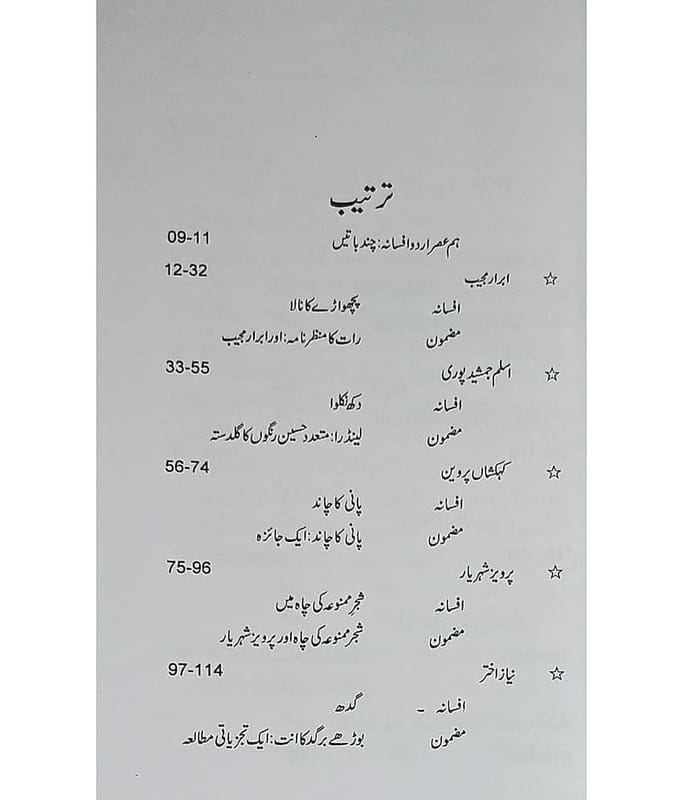 ترتیب
ہم عصر اردو افسانہ: چند باتیں 09-11
☆ ابرار مجیب 12-32
افسانہ پچھواڑے کا نالا
مضمون رات کا منظر نامہ: اور ابرار مجیب
☆ اسلم جمشید پوری 33-55
افسانہ دکھ نکلوا
مضمون لینڈرا: متعدد حسین رنگوں کا گلدستہ
☆ کہکشاں پروین 56-74
افسانہ پانی کا چاند
مضمون پانی کا چاند: ایک جائزہ
☆ پرویز شہریار 75-96
افسانہ شجرِ ممنوعہ کی چاہ میں
مضمون شجر ممنوعہ کی چاہ اور پرویز شہریار
☆ نیاز اختر 97-114
افسانہ - گدھ
مضمون بوڑھے برگد کا انت: ایک تجزیاتی مطالعہ